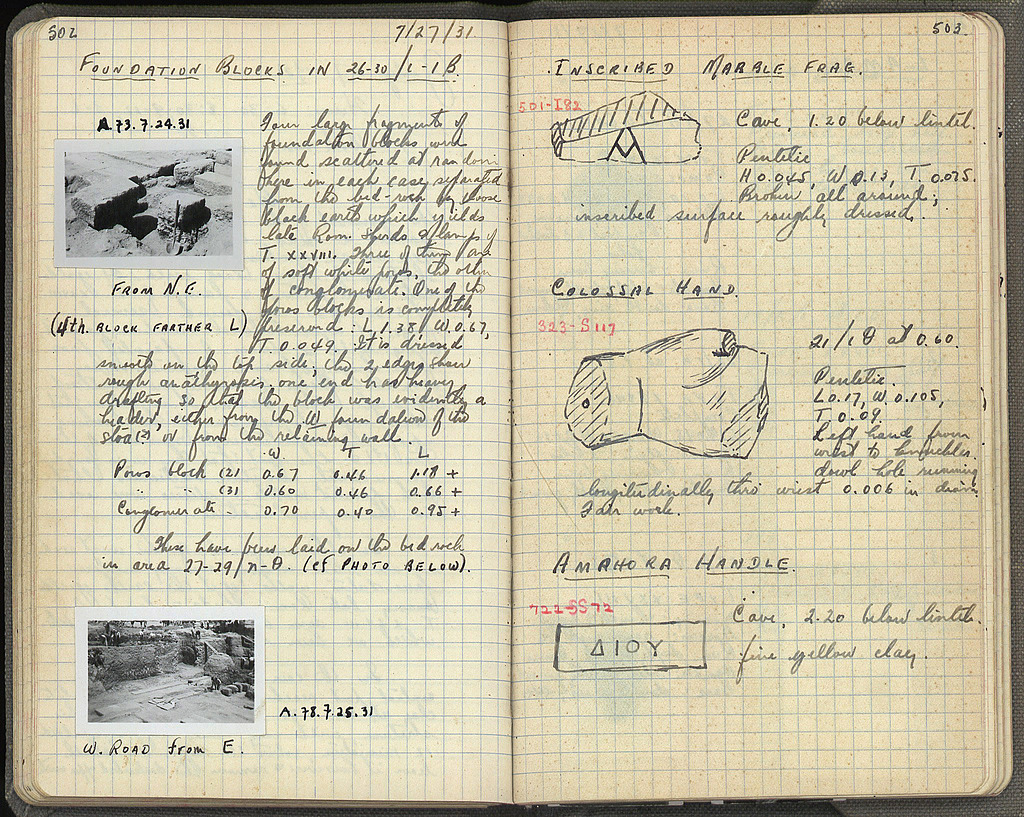 502
7/27/31
FOUNDATION BLOCKS IN 26-30/ι-ιβ.
A.73.7.24.31
FROM N.E.
(4th. BLOCK FARTHER L)
Four large fragments of
foundation blocks were
found scattered at random
here in each case separated
from the bed-rock by loose
black earth which yields
late Rom. sherds & lamps of
T. XXVIII. Three of them are
of soft white poros, the other
of conglomerate. One of the
poros blocks is completely
preserved: L. 1.38, W. 0.67,
T. 0.049. It is dressed
smooth on the top side, the 2 edges show
rough anathyrosis. one end has heavy
drafting so that the block was evidently a
header, either from the W foundation of the
stoa(?) or from the retaining wall.
W. T L
Poros block (2) 0.67 0.46 1.18 +
" " (3) 0.60 0.46 0.66 +
Conglomerate - 0.70 0.40 0.95 +
These have been laid on the bed rock
in area 27-29/η-θ. (cf PHOTO BELOW).
A.78.7.25.31
W. ROAD from E.
503
INSCRIBED MARBLE FRAG.
501-I82
Cave, 1.20 below lintel.
Pentelic
H 0.045, W 0.13, T. 0.075.
Broken all around;
inscribed surface roughly dressed.
COLOSSAL HAND.
323-S117
21/ιθ at 0.60.
Pentelic.
L 0.17, W. 0.105,
T 0.09.
Left hand from
wrist to knuckles.
dowl hole running
longitudinally thro' wrist 0.006 in diam.
Fair work.
AMPHORA HANDLE.
722-SS72
Cave, 2.20 below lintel.
ΔΙΟΥ
fine yellow clay.